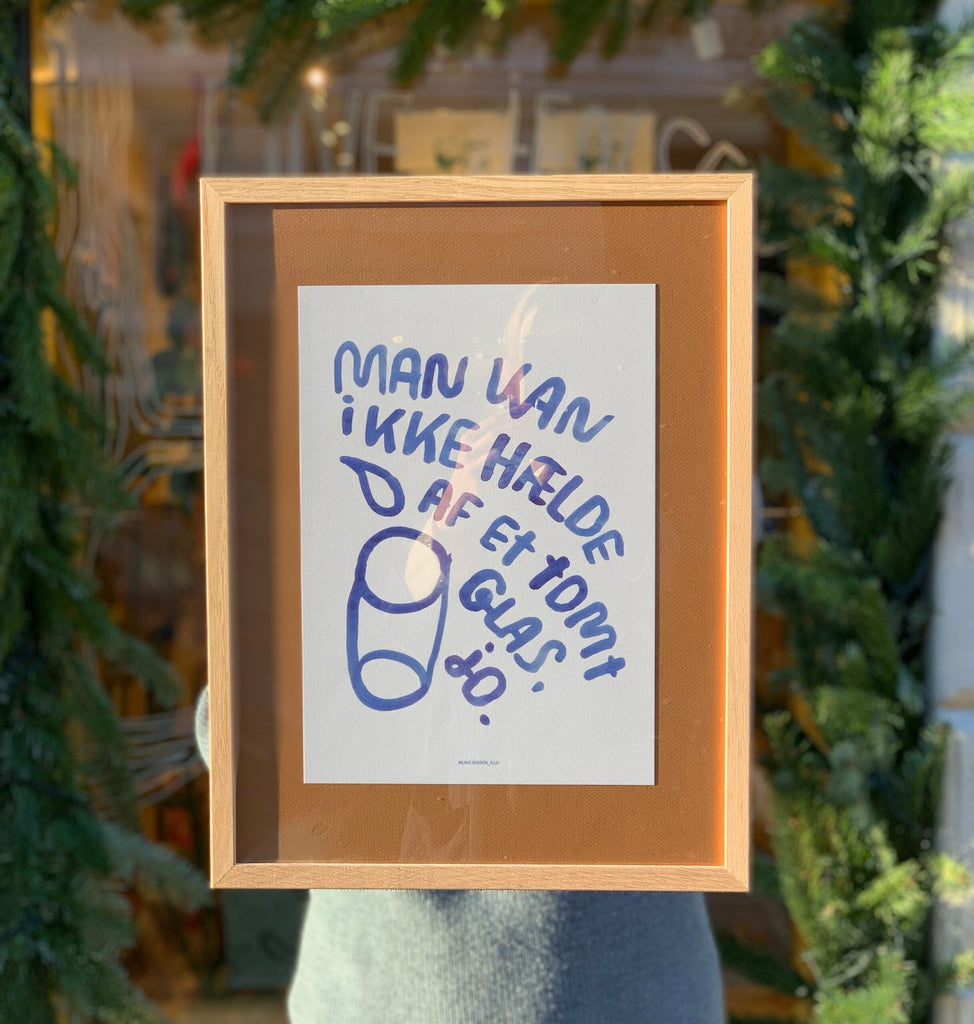 MAN KAN
iKKE HÆLDE
AF Et tOMt
GLAS.
jO.